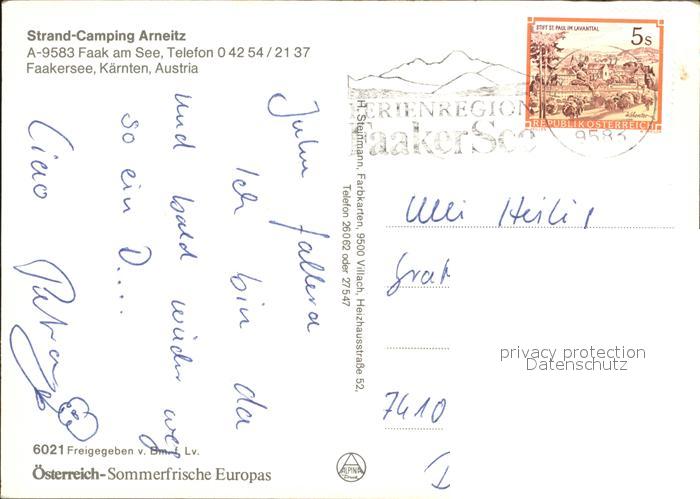 Strand-Camping Arneitz
A-9583 Faak am See, Telefon 0 42 54 / 21 37
Faakersee, Kärnten, Austria
Juhu fallera
Ich bin da
und bald wieder weg
so ein D....
Ciao Petra
6021 Freigegeben v. Bm. f. Lv.
Österreich-Sommerfrische Europas
ALPINA
Druck
H. Steinmann, Farbkarten, 9500 Villach, Heizhausstraße 52,
Telefon 26062 oder 27547
FERIENREGION
Faaker See
9583
STIFT ST. PAUL IM LAVANTTAL
5s
REPUBLIK ÖSTERREICH
Ulli Heilig
Grat
7410
D
privacy protection
Datenschutz